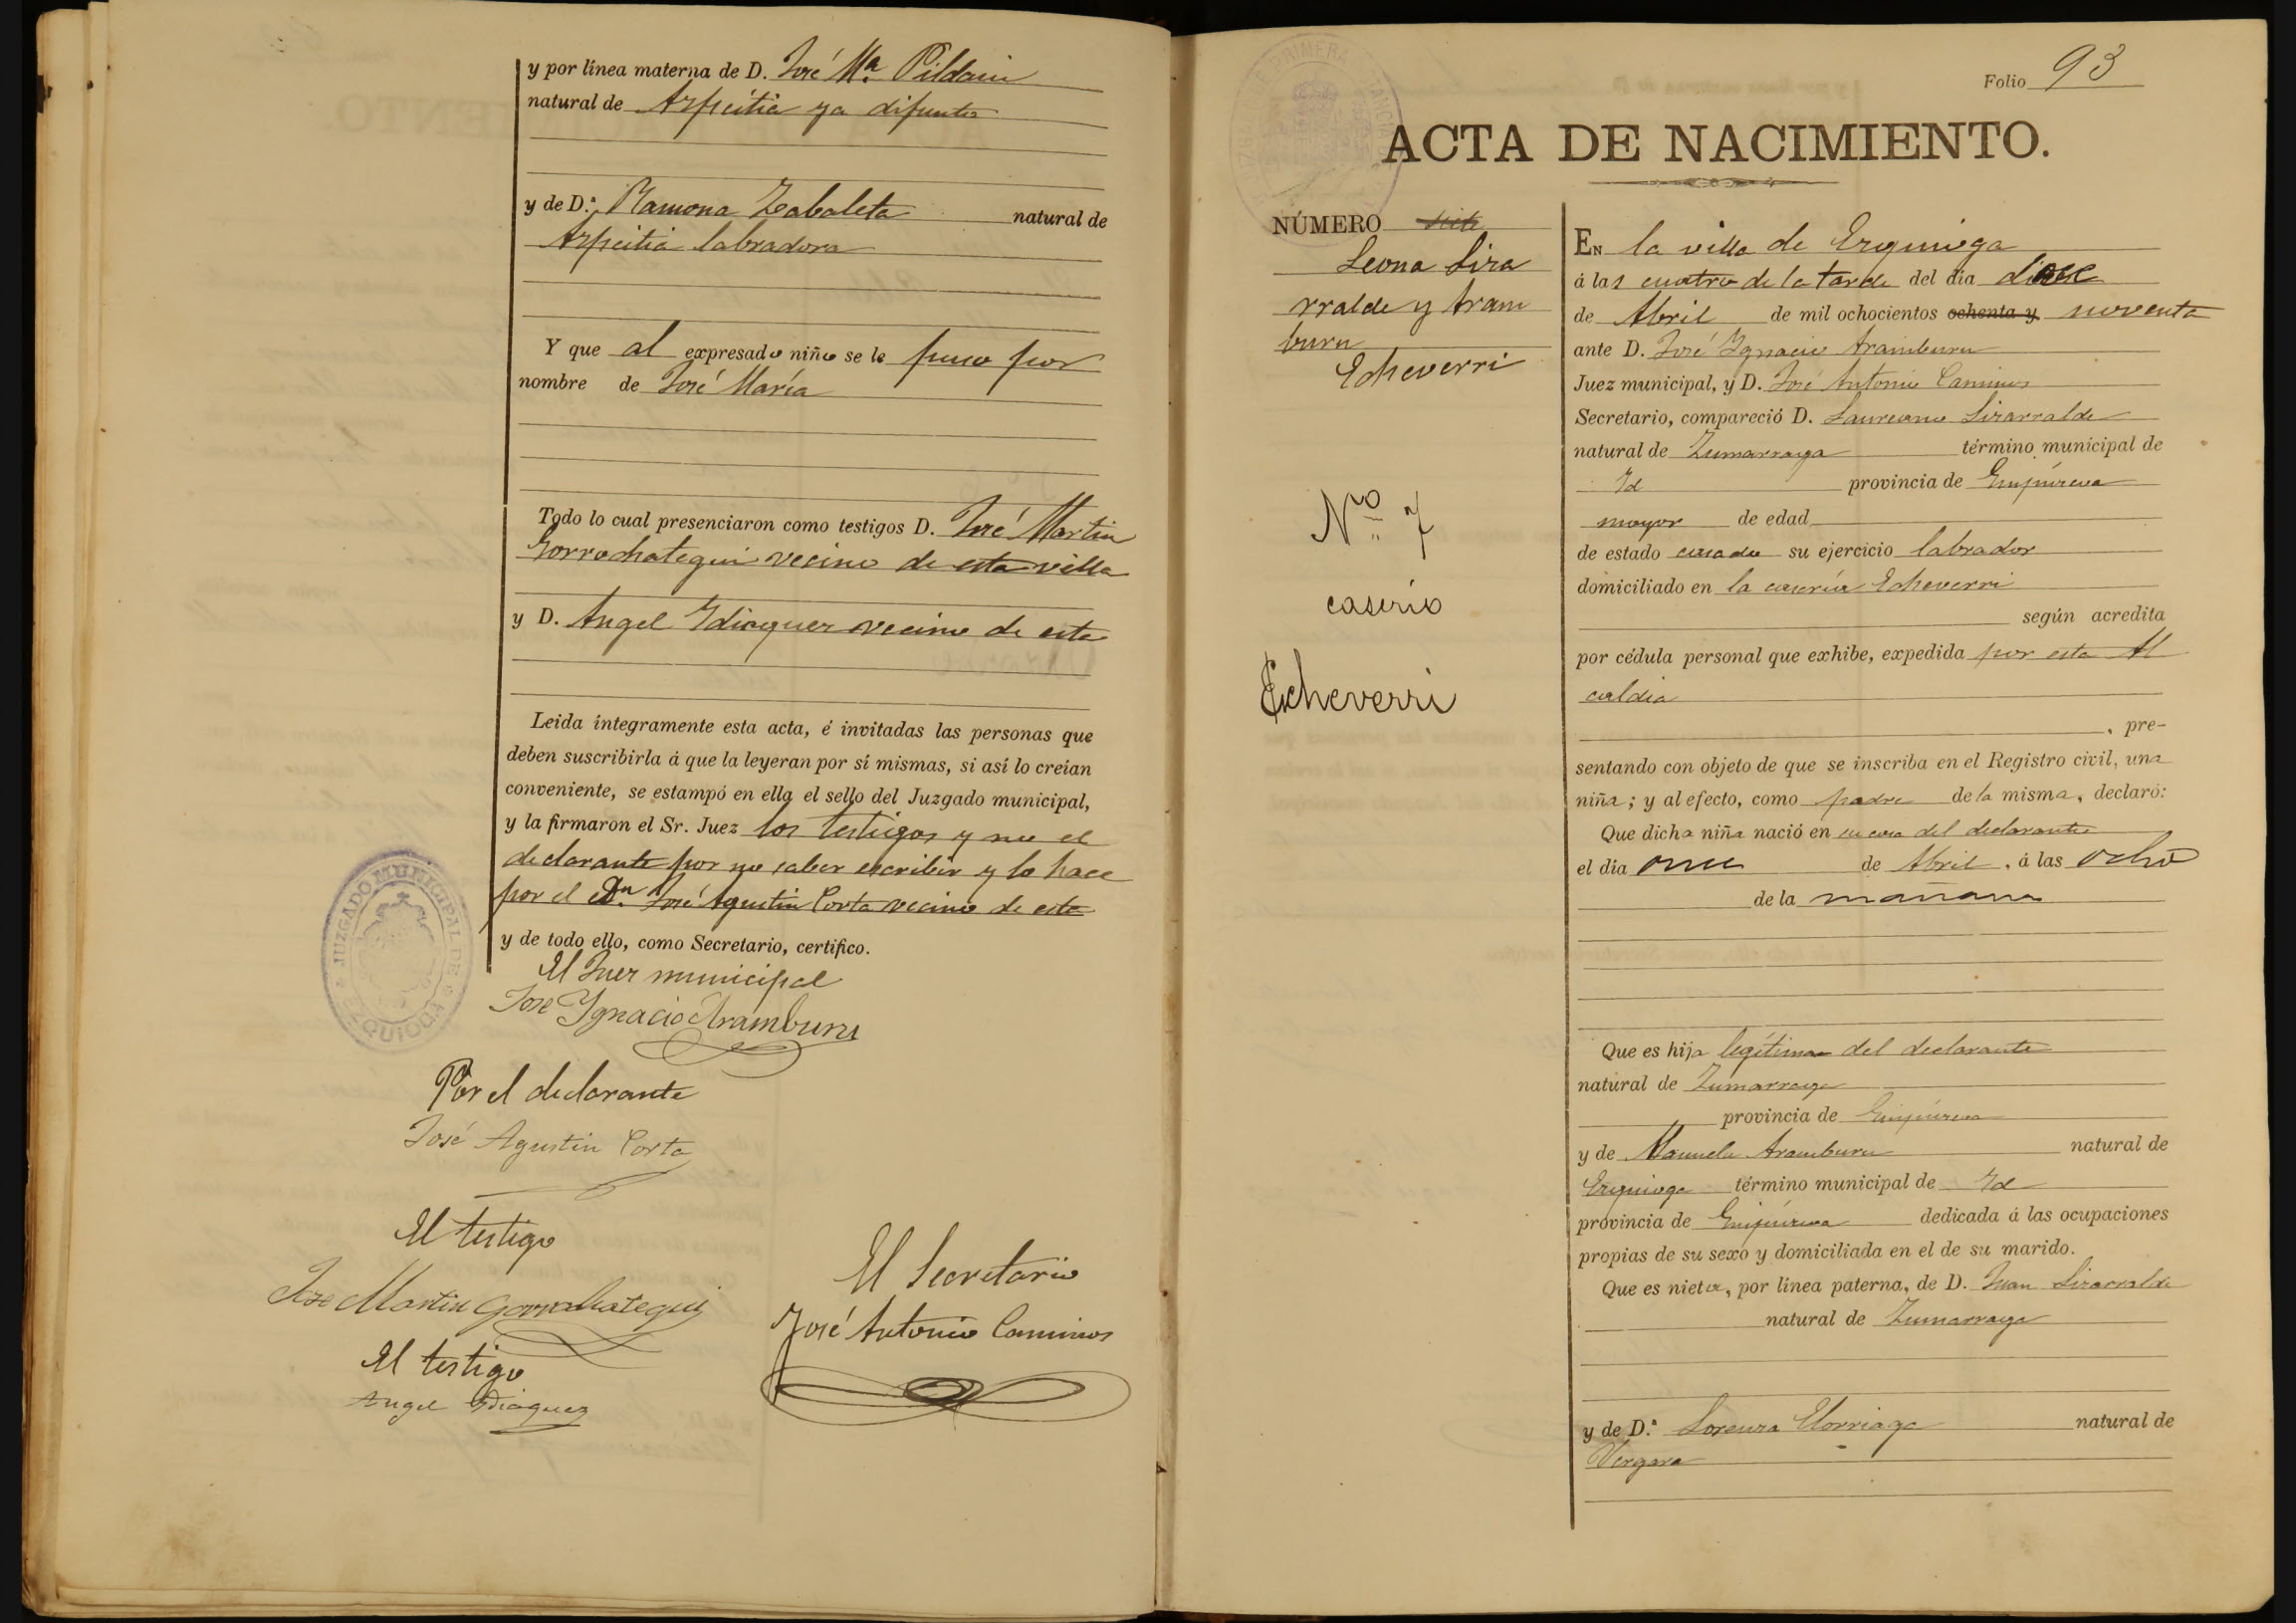 y por línea materna de D. José Mª Pildain
natural de Azpeitia ya difunto
y de D.ª Ramona Zabaleta natural de
Azpeitia labradora
Y que al expresado niño se le puso por
nombre de José María
Todo lo cual presenciaron como testigos D. José Martin
Gorrochategui vecino de esta villa
y D. Angel Ydiaquez vecino de esta
Leida íntegramente esta acta, é invitadas las personas que
deben suscribirla á que la leyeran por sí mismas, si así lo creían
conveniente, se estampó en ella el sello del Juzgado municipal,
y la firmaron el Sr. Juez los testigos y no el
declarante por no saber escribir y lo hace
por el Dn. José Agustin Corta vecino de esta
y de todo ello, como Secretario, certifico.
JUZGADO MUNICIPAL DE EZQUIOGA
El Juez municipal
Jose Ygnacio Aramburu
Por el declarante
José Agustin Corta
El testigo
Jose Martin Gorrochategui
El testigo
Angel Ydiaquez
El Secretario
José Antonio Caminos
Folio 93
ACTA DE NACIMIENTO.
NÚMERO siete
Leona Liza
rralde y Aram
buru
Echeverri
Nº 7
caserío
Echeverri
EN la villa de Ezquioga
á las cuatro de la tarde del día doce
de Abril de mil ochocientos ochenta y noventa
ante D. José Ygnacio Aramburu
Juez municipal, y D. José Antonio Caminos
Secretario, compareció D. Laureano Lizarralde
natural de Zumarraga término municipal de
Id provincia de Guipúzcoa
mayor de edad
de estado casado su ejercicio labrador
domiciliado en la casería Echeverri
según acredita
por cédula personal que exhibe, expedida por esta Al
caldia
, pre-
sentando con objeto de que se inscriba en el Registro civil, una
niña; y al efecto, como padre de la misma, declaró:
Que dicha niña nació en su casa del declarante
el día once de Abril, á las ocho
de la mañana
Que es hija legítima del declarante
natural de Zumarraga
provincia de Guipúzcoa
y de Manuela Aramburu natural de
Ezquioga término municipal de Id
provincia de Guipúzcoa dedicada á las ocupaciones
propias de su sexo y domiciliada en el de su marido.
Que es nieta, por línea paterna, de D. Juan Lizarralde
natural de Zumarraga
y de D.ª Lorenza Elorriaga natural de
Vergara